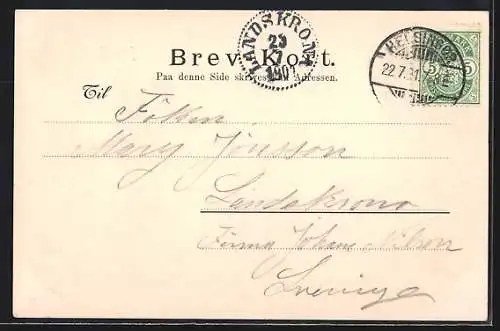 Brev-Kort.
Paa denne Side skrives kun Adressen.
LANDSKRONA
23
7
1901
HELSINGØR
22.7.
5 5
Til
Fröken
Mary Jönsson
Landskrona
Firma Johan Nilson
Sverige